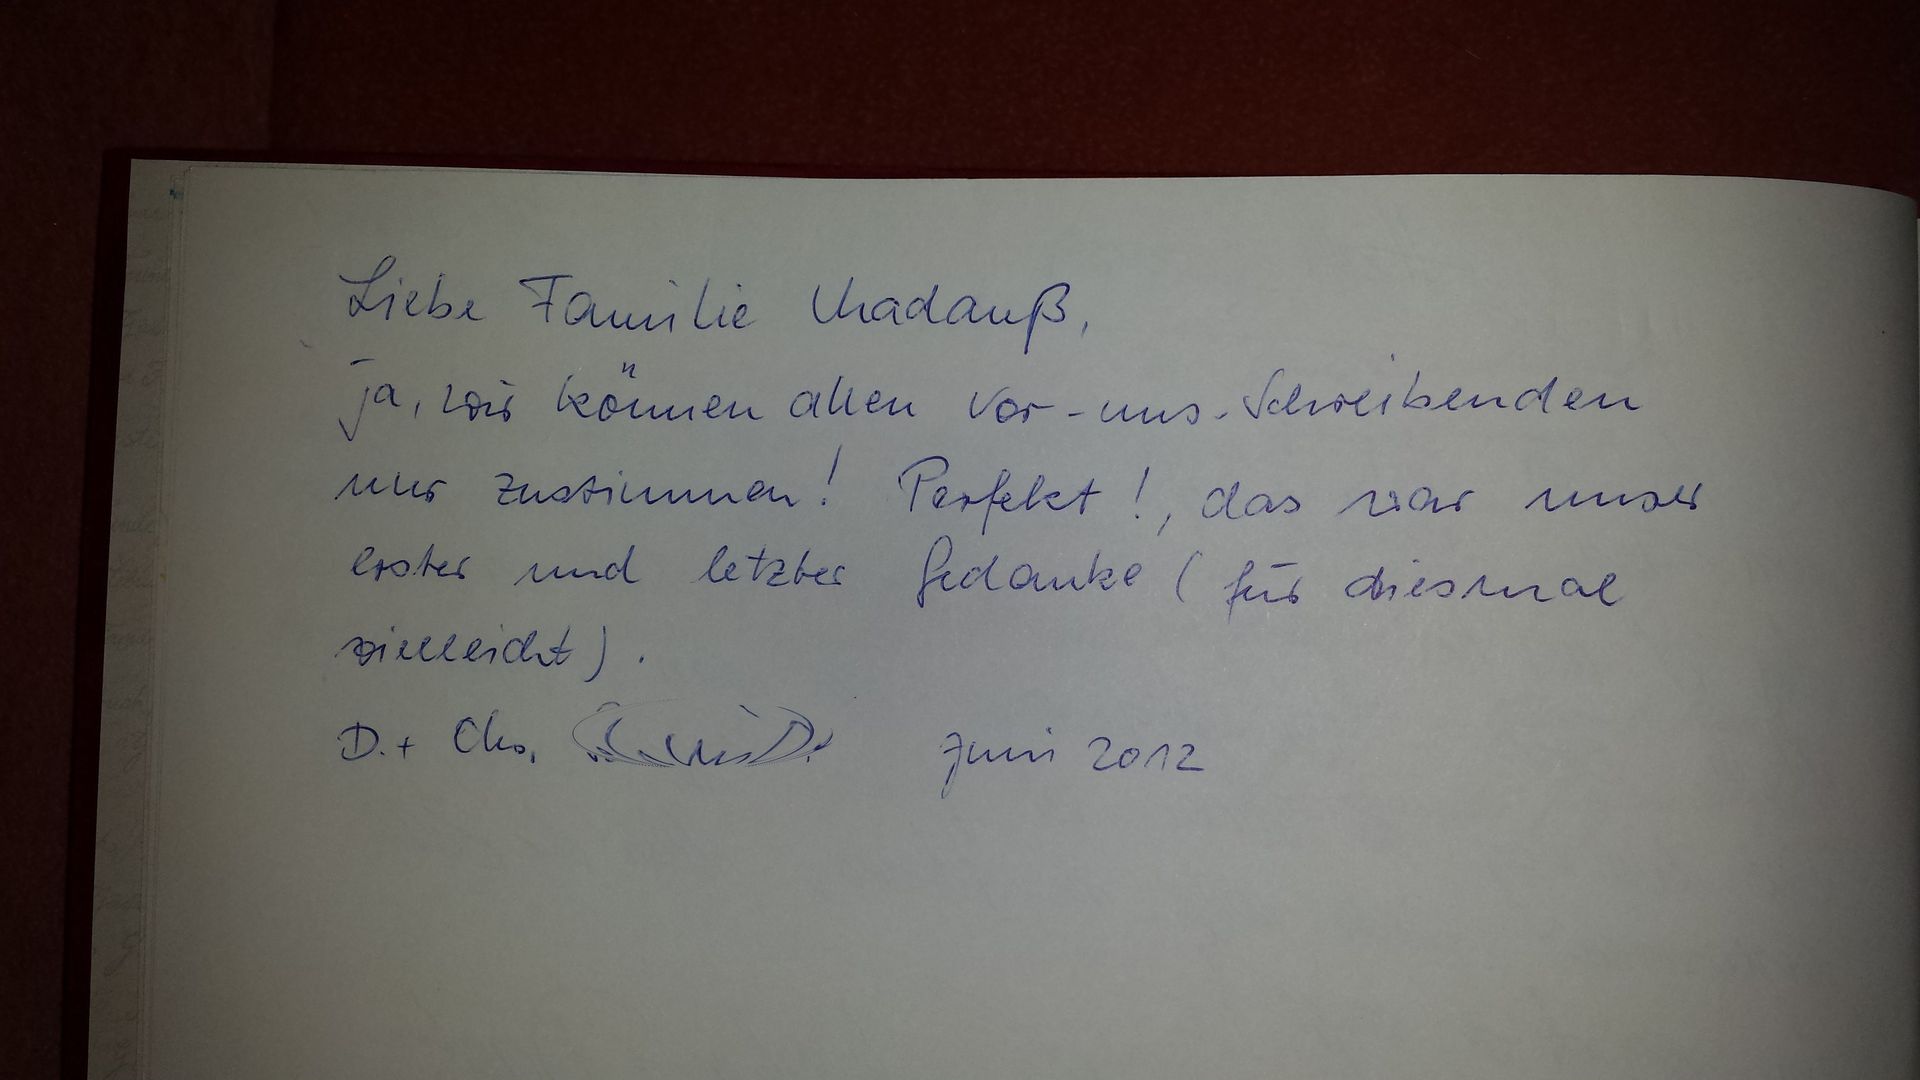 Liebe Familie Madauß,
ja, wir können allen Vor-uns-Schreibenden
nur zustimmen! Perfekt!, das war unser
erster und letzter Gedanke (für diesmal
vielleicht).
D. + Chr. Juni 2012